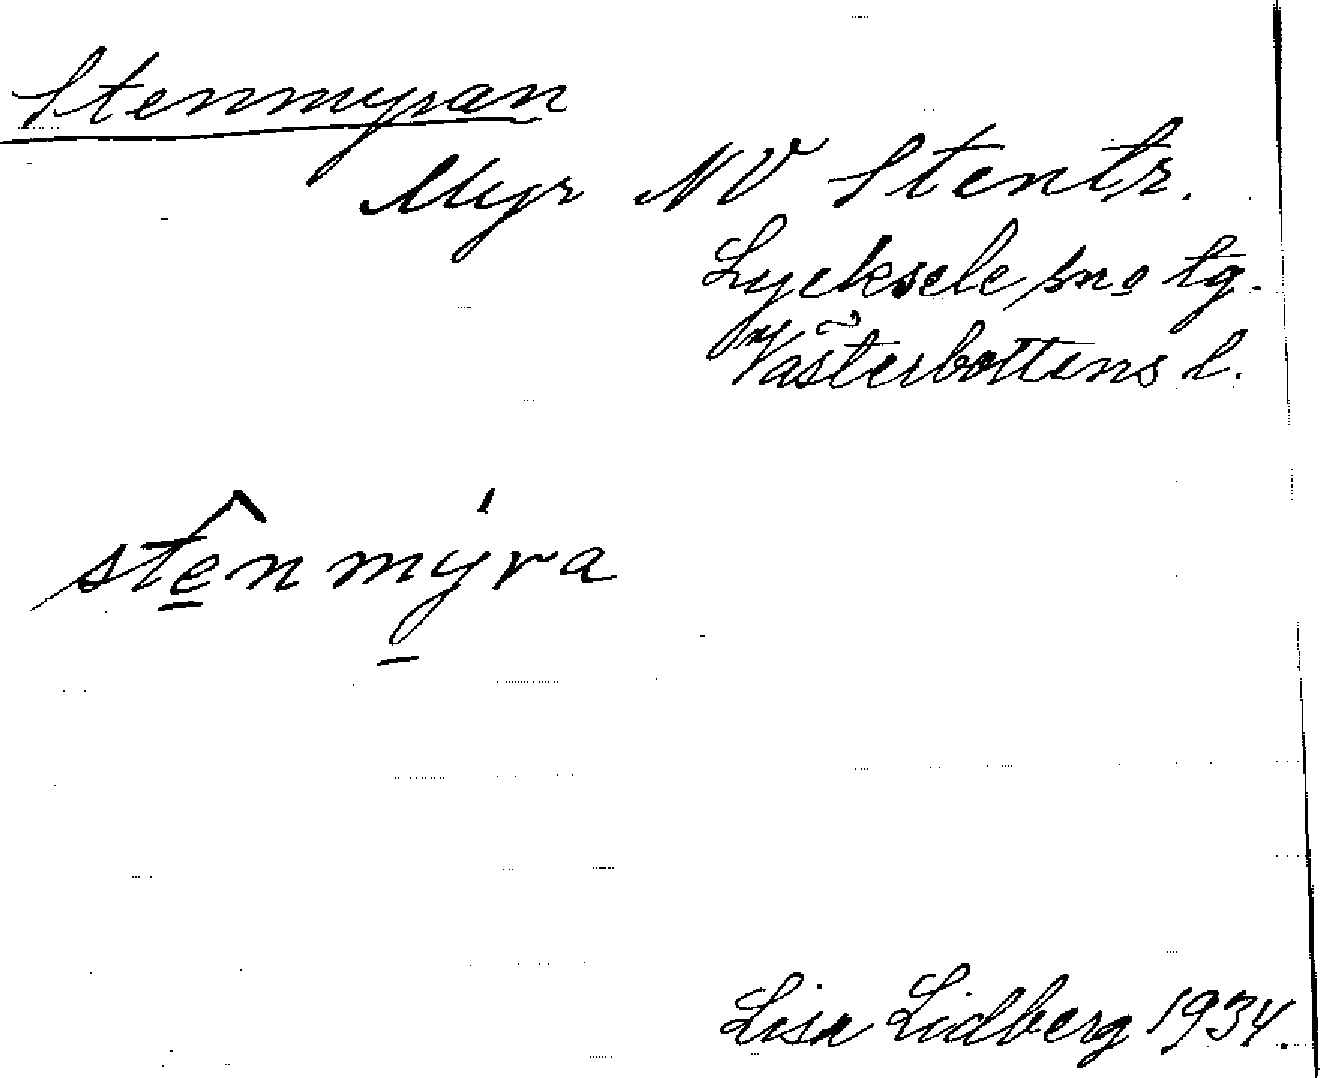 Stenmyran
Myr NV Stentr.
Lycksele sn o tg.
Västerbottens l.
stênmýra
Lisa Lidberg 1934.